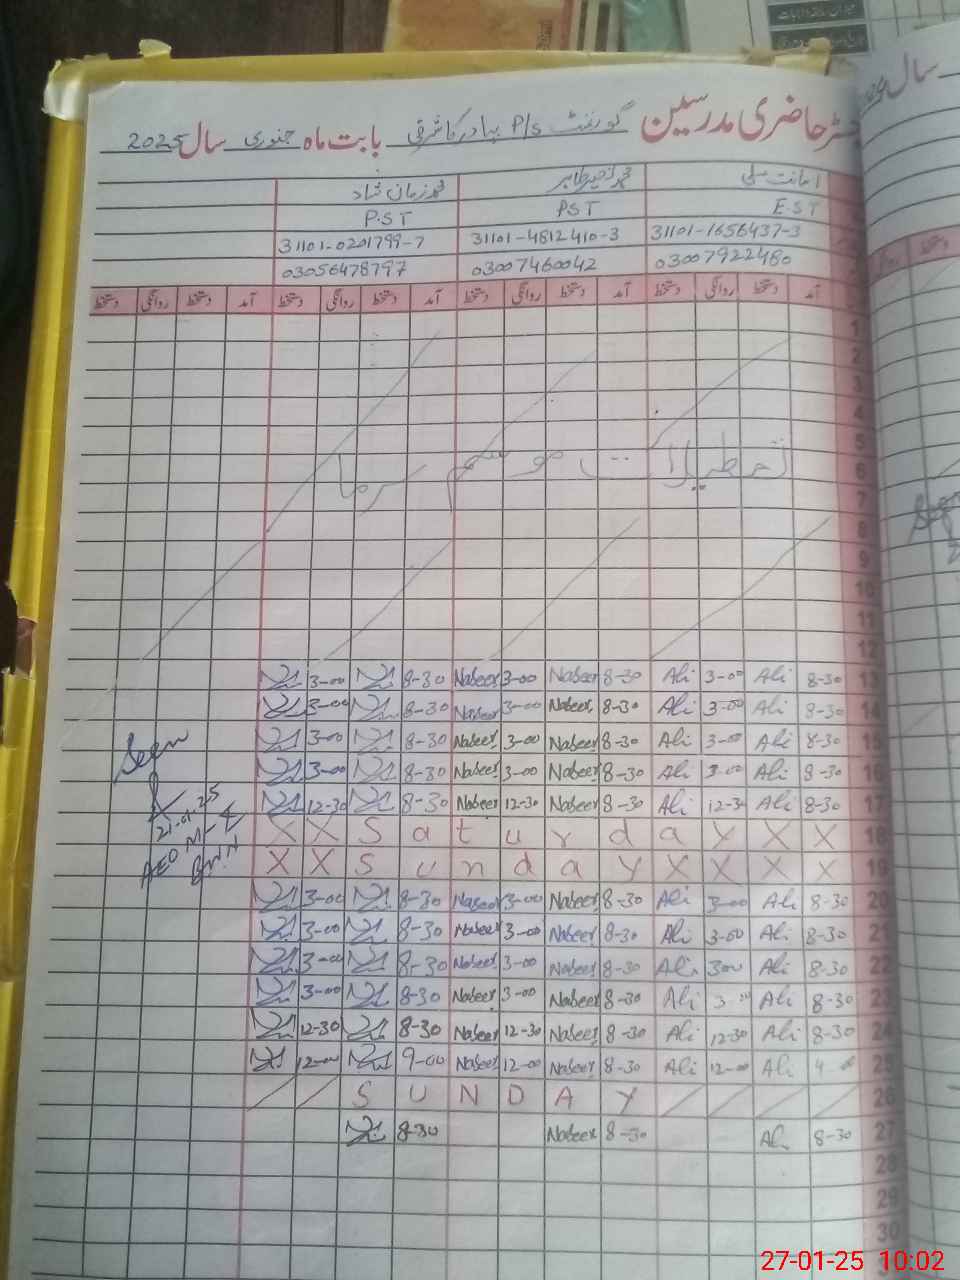 رجسٹر حاضری مدرسین گورنمنٹ P/S بہادر کا شرقی بابت ماہ جنوری سال 2025
امانت علی محمد نصیر طاہر محمد زمان شاد
E.ST PST P.ST
31101-1656437-3 31101-4812410-3 31101-0201799-7
03007922480 03007460042 03056478797
آمد دستخط روانگی دستخط آمد دستخط روانگی دستخط آمد دستخط روانگی دستخط آمد دستخط روانگی دستخط
1
2
3
4
5
تعطیلات موسم سرما 6
7
8
9
10
11
12
3-00 8-30 Nabeer 3-00 Nabeer 8-30 Ali 3-00 Ali 8-30 13
3-00 8-30 Nabeer 3-00 Nabeer 8-30 Ali 3-00 Ali 8-30 14
3-00 8-30 Nabeer 3-00 Nabeer 8-30 Ali 3-00 Ali 8-30 15
3-00 8-30 Nabeer 3-00 Nabeer 8-30 Ali 3-00 Ali 8-30 16
12-30 8-30 Nabeer 12-30 Nabeer 8-30 Ali 12-30 Ali 8-30 17
X X S a t u r d a y X X 18
X X S u n d a y X X X X 19
3-00 8-30 Nabeer 3-00 Nabeer 8-30 Ali 3-00 Ali 8-30 20
3-00 8-30 Nabeer 3-00 Nabeer 8-30 Ali 3-00 Ali 8-30 21
3-00 8-30 Nabeer 3-00 Nabeer 8-30 Ali 3-00 Ali 8-30 22
3-00 8-30 Nabeer 3-00 Nabeer 8-30 Ali 3-00 Ali 8-30 23
12-30 8-30 Nabeer 12-30 Nabeer 8-30 Ali 12-30 Ali 8-30 24
12-00 9-00 Nabeer 12-00 Nabeer 8-30 Ali 12-00 Ali 25
S U N D A Y 26
8-30 Nabeer 8-30 Ali 8-30 27
28
29
30
Seen
21-01-25
AEO M-E
BWN
سال
Seen
27-01-25 10:02